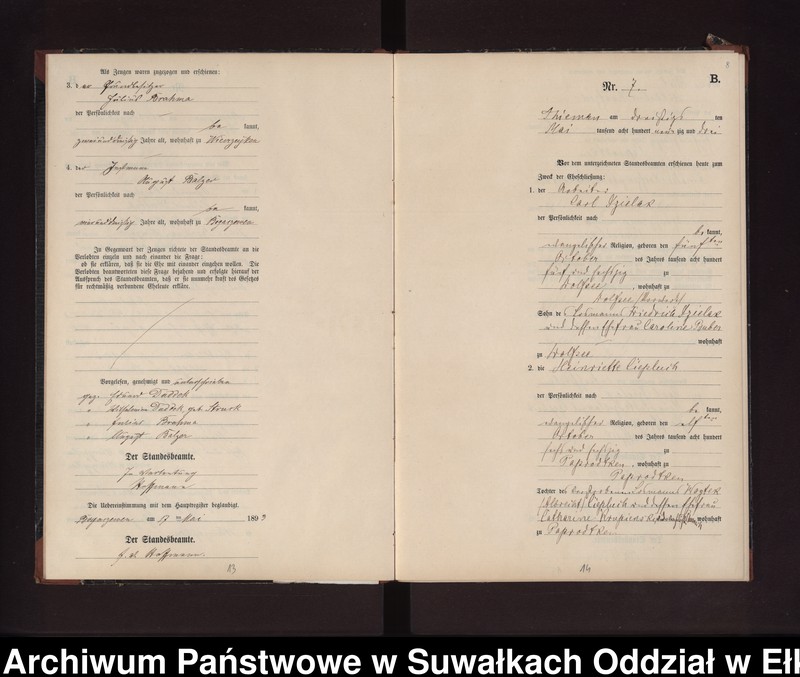 Als Zeugen waren zugezogen und erschienen:
3. der Grundbesitzer
Julius Brahma
der Persönlichkeit nach
be kannt,
Jahre alt, wohnhaft zu
4. der
August Balzer
der Persönlichkeit nach
be kannt,
Jahre alt, wohnhaft zu
In Gegenwart der Zeugen richtete der Standesbeamte an die
Verlobten einzeln und nach einander die Frage:
ob sie erklären, daß sie die Ehe mit einander eingehen wollen. Die
Verlobten beantworteten diese Frage bejahend und erfolgte hierauf der
Ausspruch des Standesbeamten, daß er sie nunmehr kraft des Gesetzes
für rechtmäßig verbundene Eheleute erkläre.
Vorgelesen, genehmigt und unterschrieben
gez. Eduard Daddek
" Wilhelmine Daddek geb.
" Julius Brahma
" August Balzer
Der Standesbeamte.
In Vertretung
Hoffmann
Die Uebereinstimmung mit dem Hauptregister beglaubigt.
am Mai 1893
Der Standesbeamte.
Hoffmann.
13
8
B.
Nr. 7.
am dreißigsten
Mai tausend acht hundert neunzig und drei
Vor dem unterzeichneten Standesbeamten erschienen heute zum
Zweck der Eheschließung:
1. der Arbeiter
Carl Dzielak
der Persönlichkeit nach
be kannt,
evangelischer Religion, geboren den fünften
October des Jahres tausend acht hundert
fünf und sechszig zu
Wolfsee, wohnhaft zu
Wolfsee
Sohn des Friedrich Dzielak
und dessen Ehefrau Caroline
wohnhaft
zu Wolfsee
2. die Heinriette Ciepluch
der Persönlichkeit nach
be kannt,
evangelischer Religion, geboren den elften
October des Jahres tausend acht hundert
sechs und sechszig zu
Paprodtken, wohnhaft zu
Paprodtken
Tochter des
Ciepluch und dessen Ehefrau
Catharine wohnhaft
zu Paprodtken
14
Archiwum Państwowe w Suwałkach Oddział w Ełk